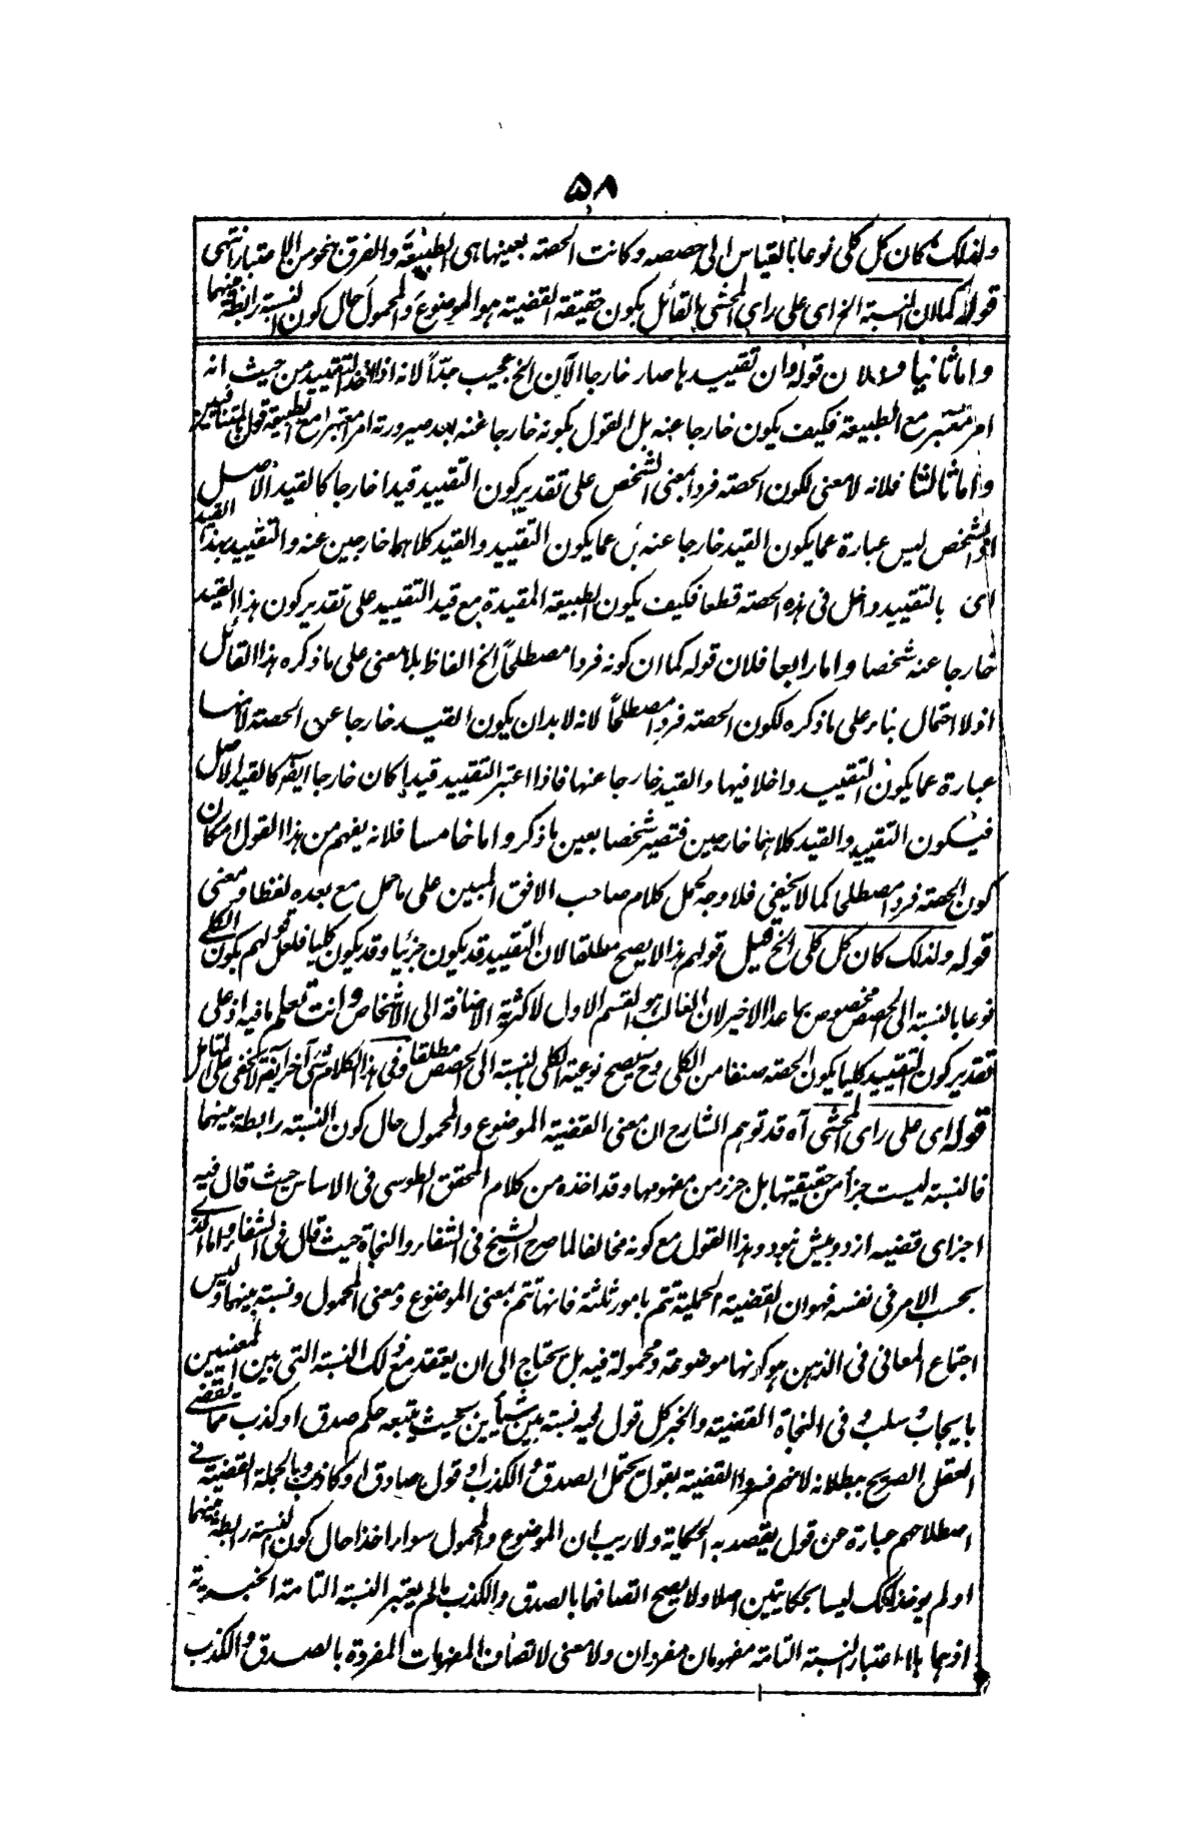 ۵۸
ولذلك كان كل كلى نوعا بالقياس الى حصصه وكانت الحصته بعينها هى الطبيعة والفرق بنحو من الاعتبار انتهى
قوله كملان النسبة الخ اى على راى المحشى القائل بكون حقيقة القضية هو الموضوع والمحمول حال كون النسبة رابطة بينهما
واما ثانيا فلان قوله وان تقييد با صار خارجا الآن الخ عجيب جدّاً لانه اذا اخذ التقييد من حيث انه
امر معتبر مع الطبيعة فكيف يكون خارجا عنه بل القول بكونه خارجا عنه بعد صيرورته امرا معتبرا مع الطبيعة قول بالمتنافيين
واما ثالثا فلانه لا معنى لكون الحصته فردا بمعنى الشخص على تقدير كون التقييد قيدا خارجا كالقيد الاصل
اذ الشخص ليس عبارة عما يكون القيد خارجا عنه بل عما يكون التقييد والقيد كلاهما خارجين عنه والتقييد بهذا القيد
اى بالتقييد داخل فى هذه الحصته قطعا فكيف يكون الطبيعة المقيدة مع قيد التقييد على تقدير كون هذا القيد
خارجا عنه شخصا واما رابعا فلان قوله كما ان كونه فردا مصطلحاً الخ الفاظ بلا معنى على ما ذكره هذا القائل
اذ لا احتمال بناء على ما ذكره لكون الحصته فردا مصطلحاً لانه لا بد ان يكون القيد خارجا عن الحصته لانها
عبارة عما يكون التقييد داخلا فيها والقيد خارجا عنها فاذا اعتبر التقييد قيدا كان خارجا ايضا كالقيد الاصل
فيكون التقييد والقيد كلاهما خارجين فتصير شخصا بعين ما ذكر واما خامسا فلانه يفهم من هذا القول امكان
كون الحصته فردا مصطلحا كما لا يخفى فلا وجه لحمل كلام صاحب الافق المبين على ما حمل مع بعده لفظا ومعنى
قوله ولذلك كان كل كلى الخ قيل قولهم هذا لا يصح مطلقا لان التقييد قد يكون جزئيا وقد يكون كليا فلعل قولهم بكون الكلى
نوعا بالنسبة الى الحصص مخصوص بما عدا الاخير لان الغالب هو القسم الاول لاكثرية الاضافة الى الاشخاص وانت تعلم ما فيه اذ على
تقدير كون التقييد كليا يكون الحصته صنفا من الكلى وح يصح نوعية الكلى بالنسبة الى الحصص مطلقا وفى هذا الكلام شئ آخر ايضا لا يخفى على المتأمل
قوله اى على راى المحشى آه قد توهم الشارح ان معنى القضية الموضوع والمحمول حال كون النسبة رابطة بينهما
فالنسبة ليست جزأ من حقيقتها بل جزء من مفهومها وقد اخذه من كلام المحقق الطوسى فى الاساس حيث قال فيه
اجزاى قضيه از دو بيش نبود وهذا القول مع كونه مخالفا لما صرح الشيخ فى الشفاء والنجاة حيث قال فى الشفاء واما الذى
بحسب الامر فى نفسه فهو ان القضية الحملية تتم بامور ثلثة فانها تتم بمعنى الموضوع ومعنى المحمول ونسبة بينهما وليس
اجتماع المعانى فى الذهن هو كونها موضوعة ومحمولة فيه بل يحتاج الى ان يعتقد مع ذلك النسبة التى بين المعنيين
بايجاب او سلب وفى النجاة القضية والخبر كل قول فيه نسبة بين شيأين بحيث يتبعه حكم صدق او كذب مما يقضى
العقل الصريح ببطلانه لانهم فسروا القضية بقول يحتمل الصدق والكذب او قول صادق او كاذب وبالجملة القضية فى
اصطلاحهم عبارة عن قول يقصد به الحكاية ولا ريب ان الموضوع والمحمول سواء اخذا حال كون النسبة رابطة بينهما
او لم يوخذ كذلك ليسا بحكايتين اصلا ولا يصح اتصافهما بالصدق والكذب ما لم يعتبر النسبة التامة الخبرية
اذ هما بلا اعتبار النسبة التامة مفهومان مفردان ولا معنى لاتصاف المفهومات المفردة بالصدق والكذب